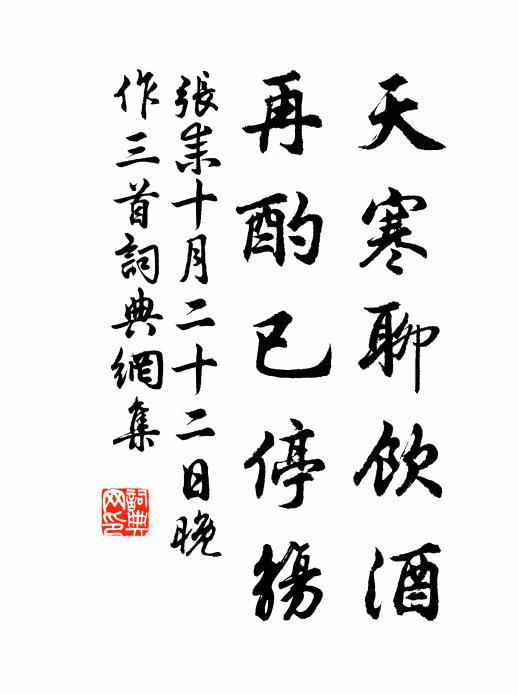 天寒聊饮酒
再酌已停觴
張耒十月二十二日晚
作三首詞典網集
詞典
网印